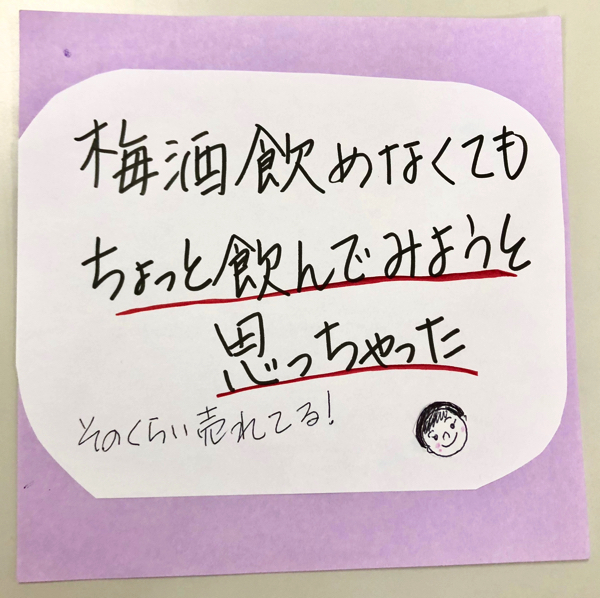 梅酒飲めなくても
ちょっと飲んでみようと
思っちゃった
そのくらい売れてる!